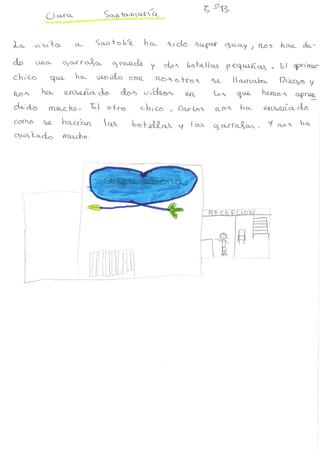 Clara Santamaría 5ºB
La visita a Santolín ha sido super guay, nos han da-
do una garrafa grande y dos botellas pequeñas. El primer
chico que ha venido con nosotros se llamaba Diego y
nos ha enseñado dos vídeos en los que hemos apren
dido mucho. El otro chico, Carlos nos ha enseñado
como se hacían las botellas y las garrafas. Y nos ha
gustado mucho.
RECEPCION